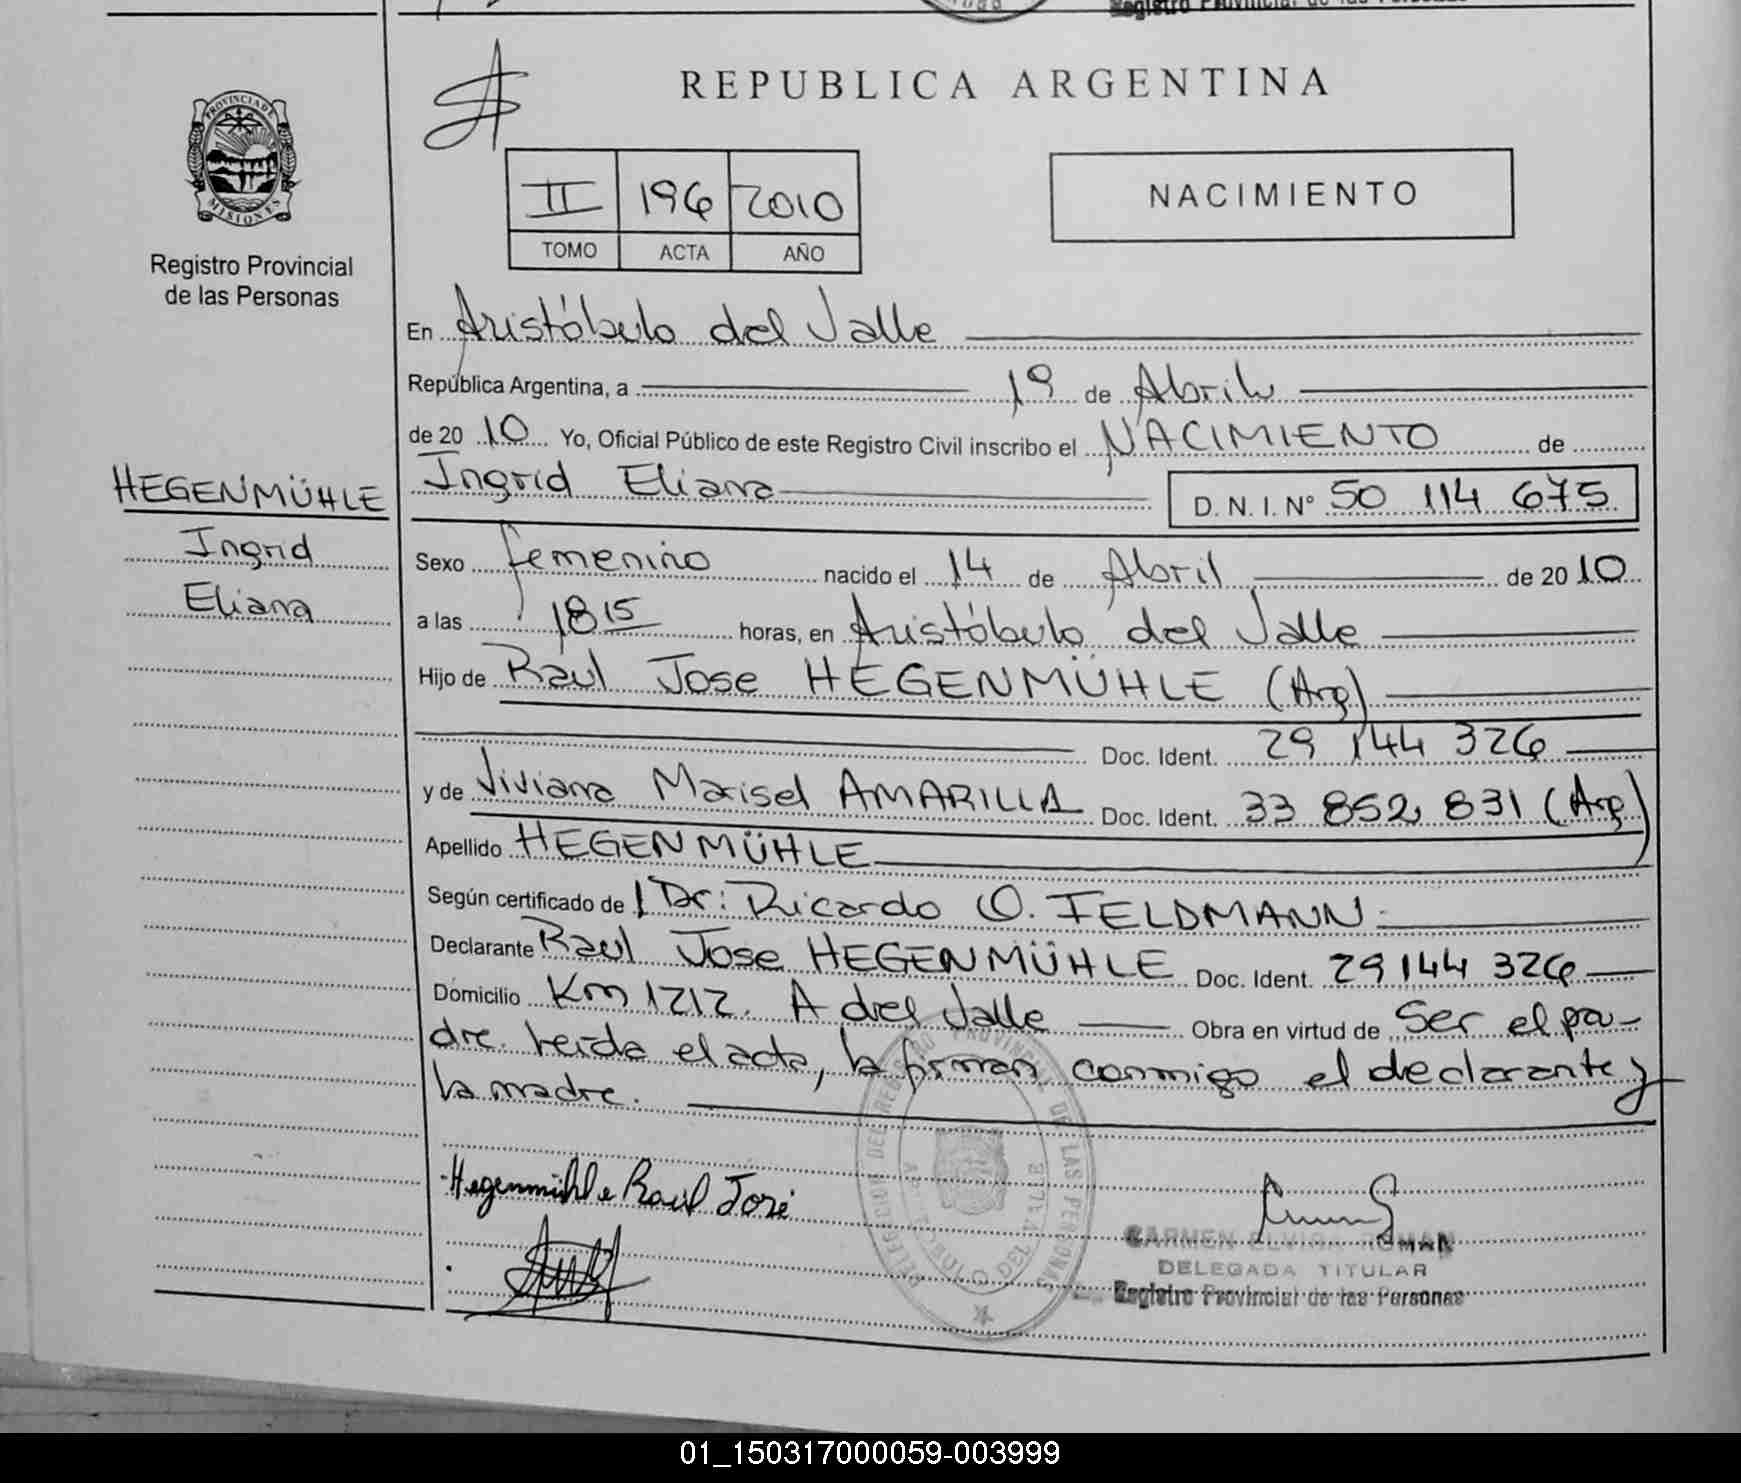 Registro Provincial de las Personas
REPUBLICA ARGENTINA
PROVINCIA DE
MISIONES
Registro Provincial
de las Personas
II 196 2010
TOMO ACTA AÑO
NACIMIENTO
En Aristóbulo del Valle
República Argentina, a 19 de Abril
de 20 10 Yo, Oficial Público de este Registro Civil inscribo el NACIMIENTO de
HEGENMÜHLE
Ingrid
Eliana
Ingrid Eliana D. N. I. Nº 50 114 675
Sexo femenino nacido el 14 de Abril de 20 10
a las 18 15 horas, en Aristóbulo del Valle
Hijo de Raul Jose HEGENMÜHLE (Arg)
Doc. Ident. 29 144 326
y de Viviana Marisel AMARILLA Doc. Ident. 33 852 831 (Arg)
Apellido HEGENMÜHLE
Según certificado de l Dr: Ricardo O. FELDMANN
Declarante Raul Jose HEGENMÜHLE Doc. Ident. 29 144 326
Domicilio Km 1212. A del Valle Obra en virtud de Ser el pa-
dre. Leida el acta, la firman conmigo el declarante y
la madre.
Hegenmühle Raúl José
DELEGACION DEL REGISTRO PROVINCIAL DE LAS PERSONAS
ARISTOBULO DEL VALLE
CARMEN ELVIRA ROMAN
DELEGADA TITULAR
Registro Provincial de las Personas
01_150317000059-003999